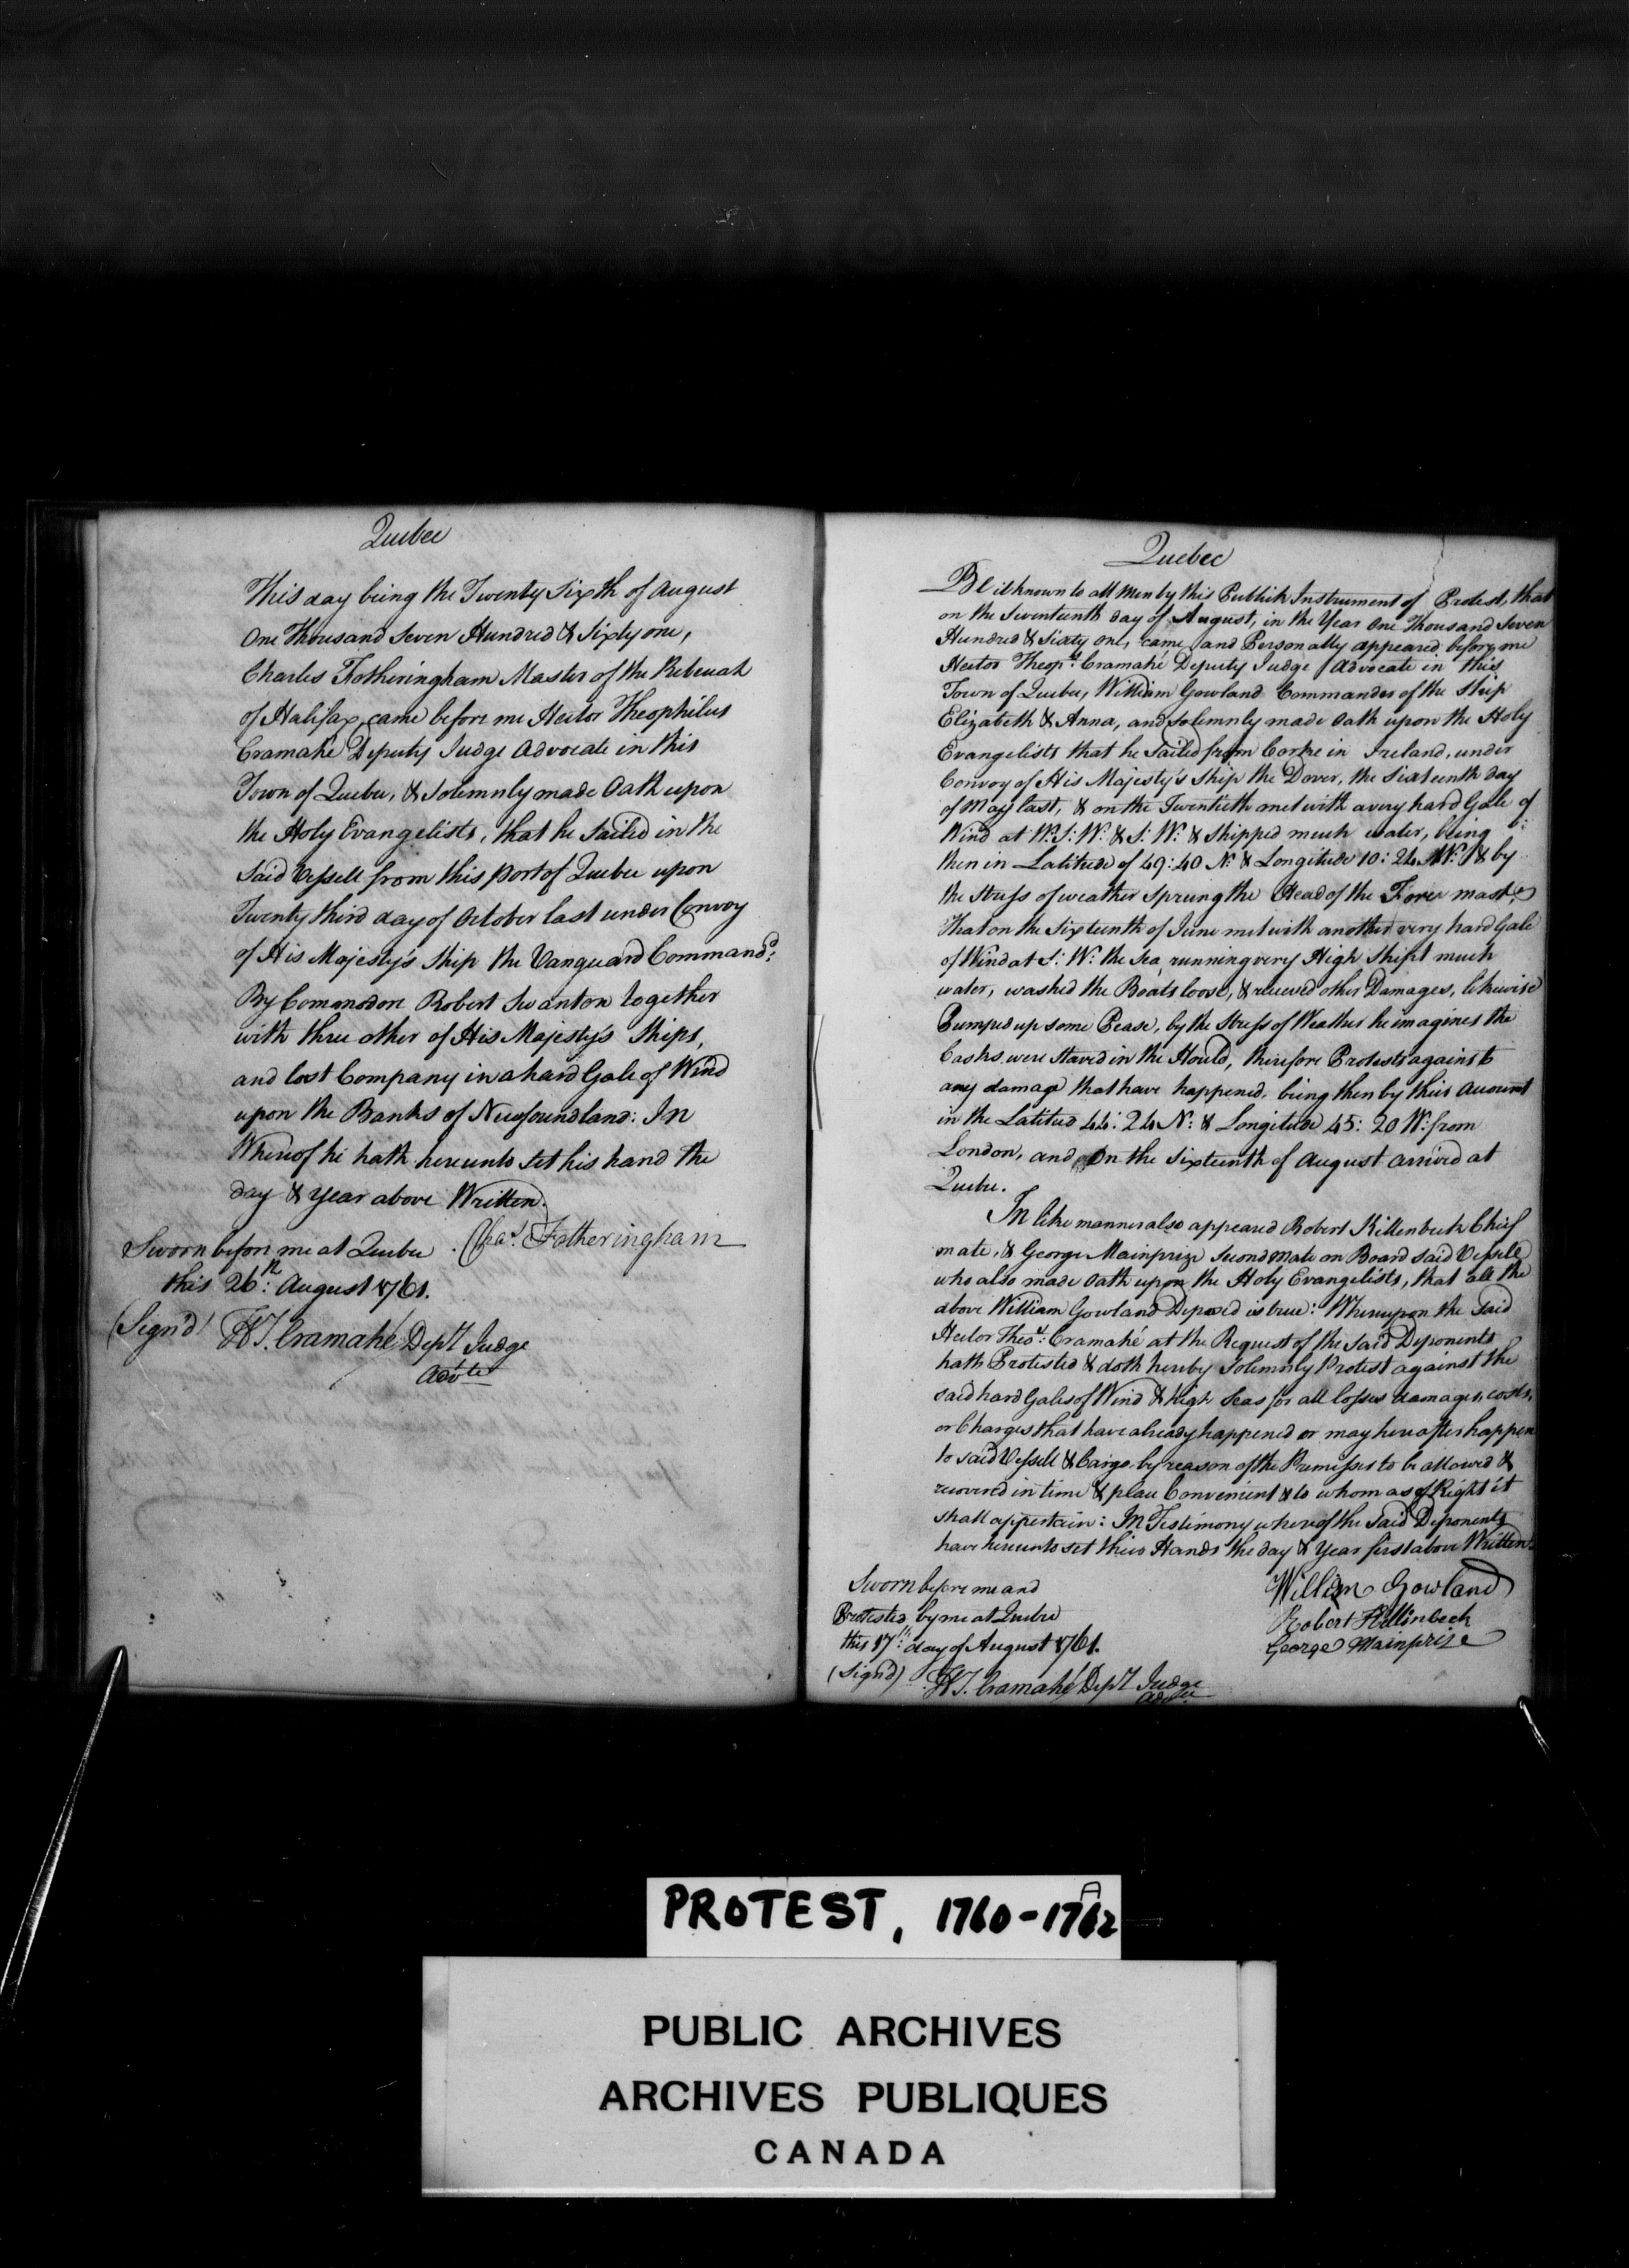 Quebec
This day being the Twenty Sixth of August
One Thousand Seven Hundred & Sixty one,
Charles Fotheringham Master of the Rebecah
of Halifax, came before me Hector Theophilus
Cramahé Deputy Judge Advocate in this
Town of Quebec, & Solemnly made Oath upon
the Holy Evangelists, that he Sailed in the
Said Vessell from this port of Quebec upon
Twenty third day of October last under Convoy
of His Majesty's Ship the Vanguard Command.d
By Comonodore Robert Swanton together
with three other of His Majesty's Ships,
and lost Company in a hard Gale of Wind
upon the Banks of Newfoundland: In
Whereof he hath hereunto Set his hand the
day & Year above Written.
Chas. Fotheringham
Sworn before me at Quebec
this 26th: August 1761.
(Sign'd) H T. Cramahé Depty Judge
Advte
Quebec
Be it known to all Men by this Publick Instrument of Protest, that
on the Seventeenth day of August, in the Year One Thousand Seven
Hundred & Sixty one, came and Personally appeared before me
Hector Theop.s Cramahé Deputy Judge Advocate in this
Town of Quebec, William Gowland Commander of the Ship
Elizabeth & Anna, and Solemnly made Oath upon the Holy
Evangelists that he Sailed from Corke in Ireland, under
Convoy of His Majesty's Ship the Dover, the Sixteenth day
of May last, & on the Twentieth met with a very hard Gale of
Wind at W: S: W: & S: W: & Shipped much water, being
then in Latitude of 49: 40 N: & Longitude 10: 24 W: & by
the Stress of weather Sprung the Head of the Fore mast,
That on the Sixteenth of June met with another very hard Gale
of Wind at S: W: the Sea running very High Shipt much
water, washed the Boats loose, & received other Damages, likewise
Pumped up some Pease, by the Stress of Weather he imagines the
Casks were Staved in the Hould, therefore Protests against
any damage that have happened, being then by their Account
in the Latitud 44: 24 N: & Longitude 45: 20 W: from
London, and On the Sixteenth of August arrived at
Quebec.
In like manner also appeared Robert Killenbeck Chief
mate, & George Mainprize Second Mate on Board said Vessell
who also made Oath upon the Holy Evangelists, that all the
above William Gowland Deposed is true: Whereupon the Said
Hector Theo.s: Cramahé at the Request of the Said Deponents
hath Protested & doth hereby Solemnly Protest against the
said hard Gales of Wind & high Seas for all losses damages, costs,
or Charges that have already happened or may hereafter happen
to said Vessell & Cargo by reason of the Premisses to be allowed &
recovered in time & place Convenient & to whom as of Right it
shall appertain: In Testimony whereof the Said Deponents
have hereunto set their Hands the day & Year first above Written.
William Gowland
Robert Killinbeck
George Mainprise
Sworn before me and
Protested by me at Quebec
this 17th: day of August 1761.
(Sign'd) H T. Cramahé Depty Judge
Advte
PROTEST, 1760-1762
PUBLIC ARCHIVES
ARCHIVES PUBLIQUES
CANADA